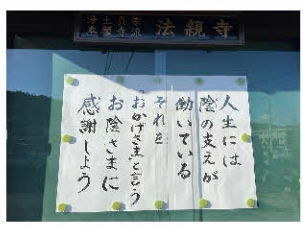 浄土真宗
本願寺派
法親寺
人生には
陰の支えが
働いている
それを
「おかげさま」と言う
お陰さまに
感謝しよう